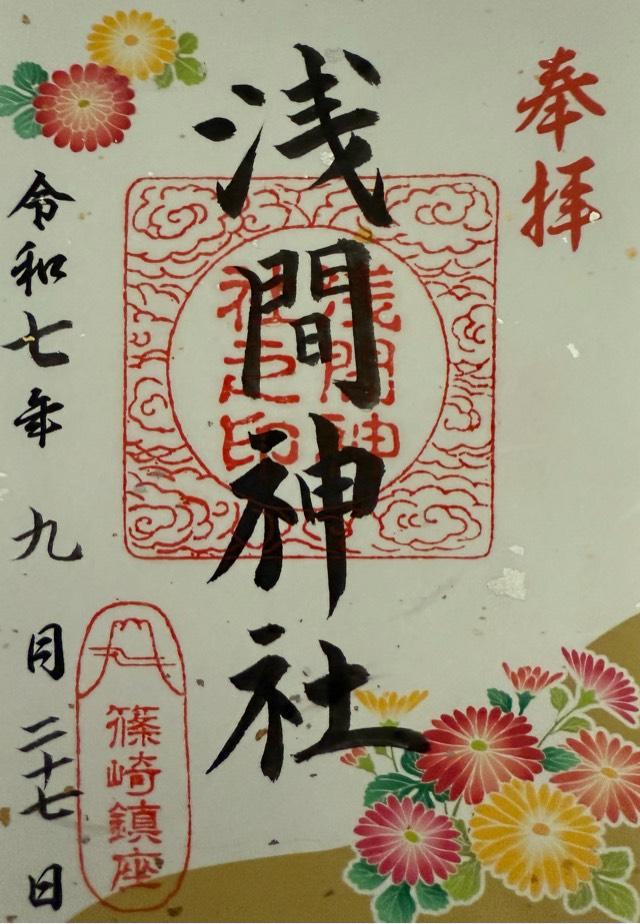 奉拝
浅間神社
浅間神
社之印
令和七年九月二十七日
篠崎鎮座